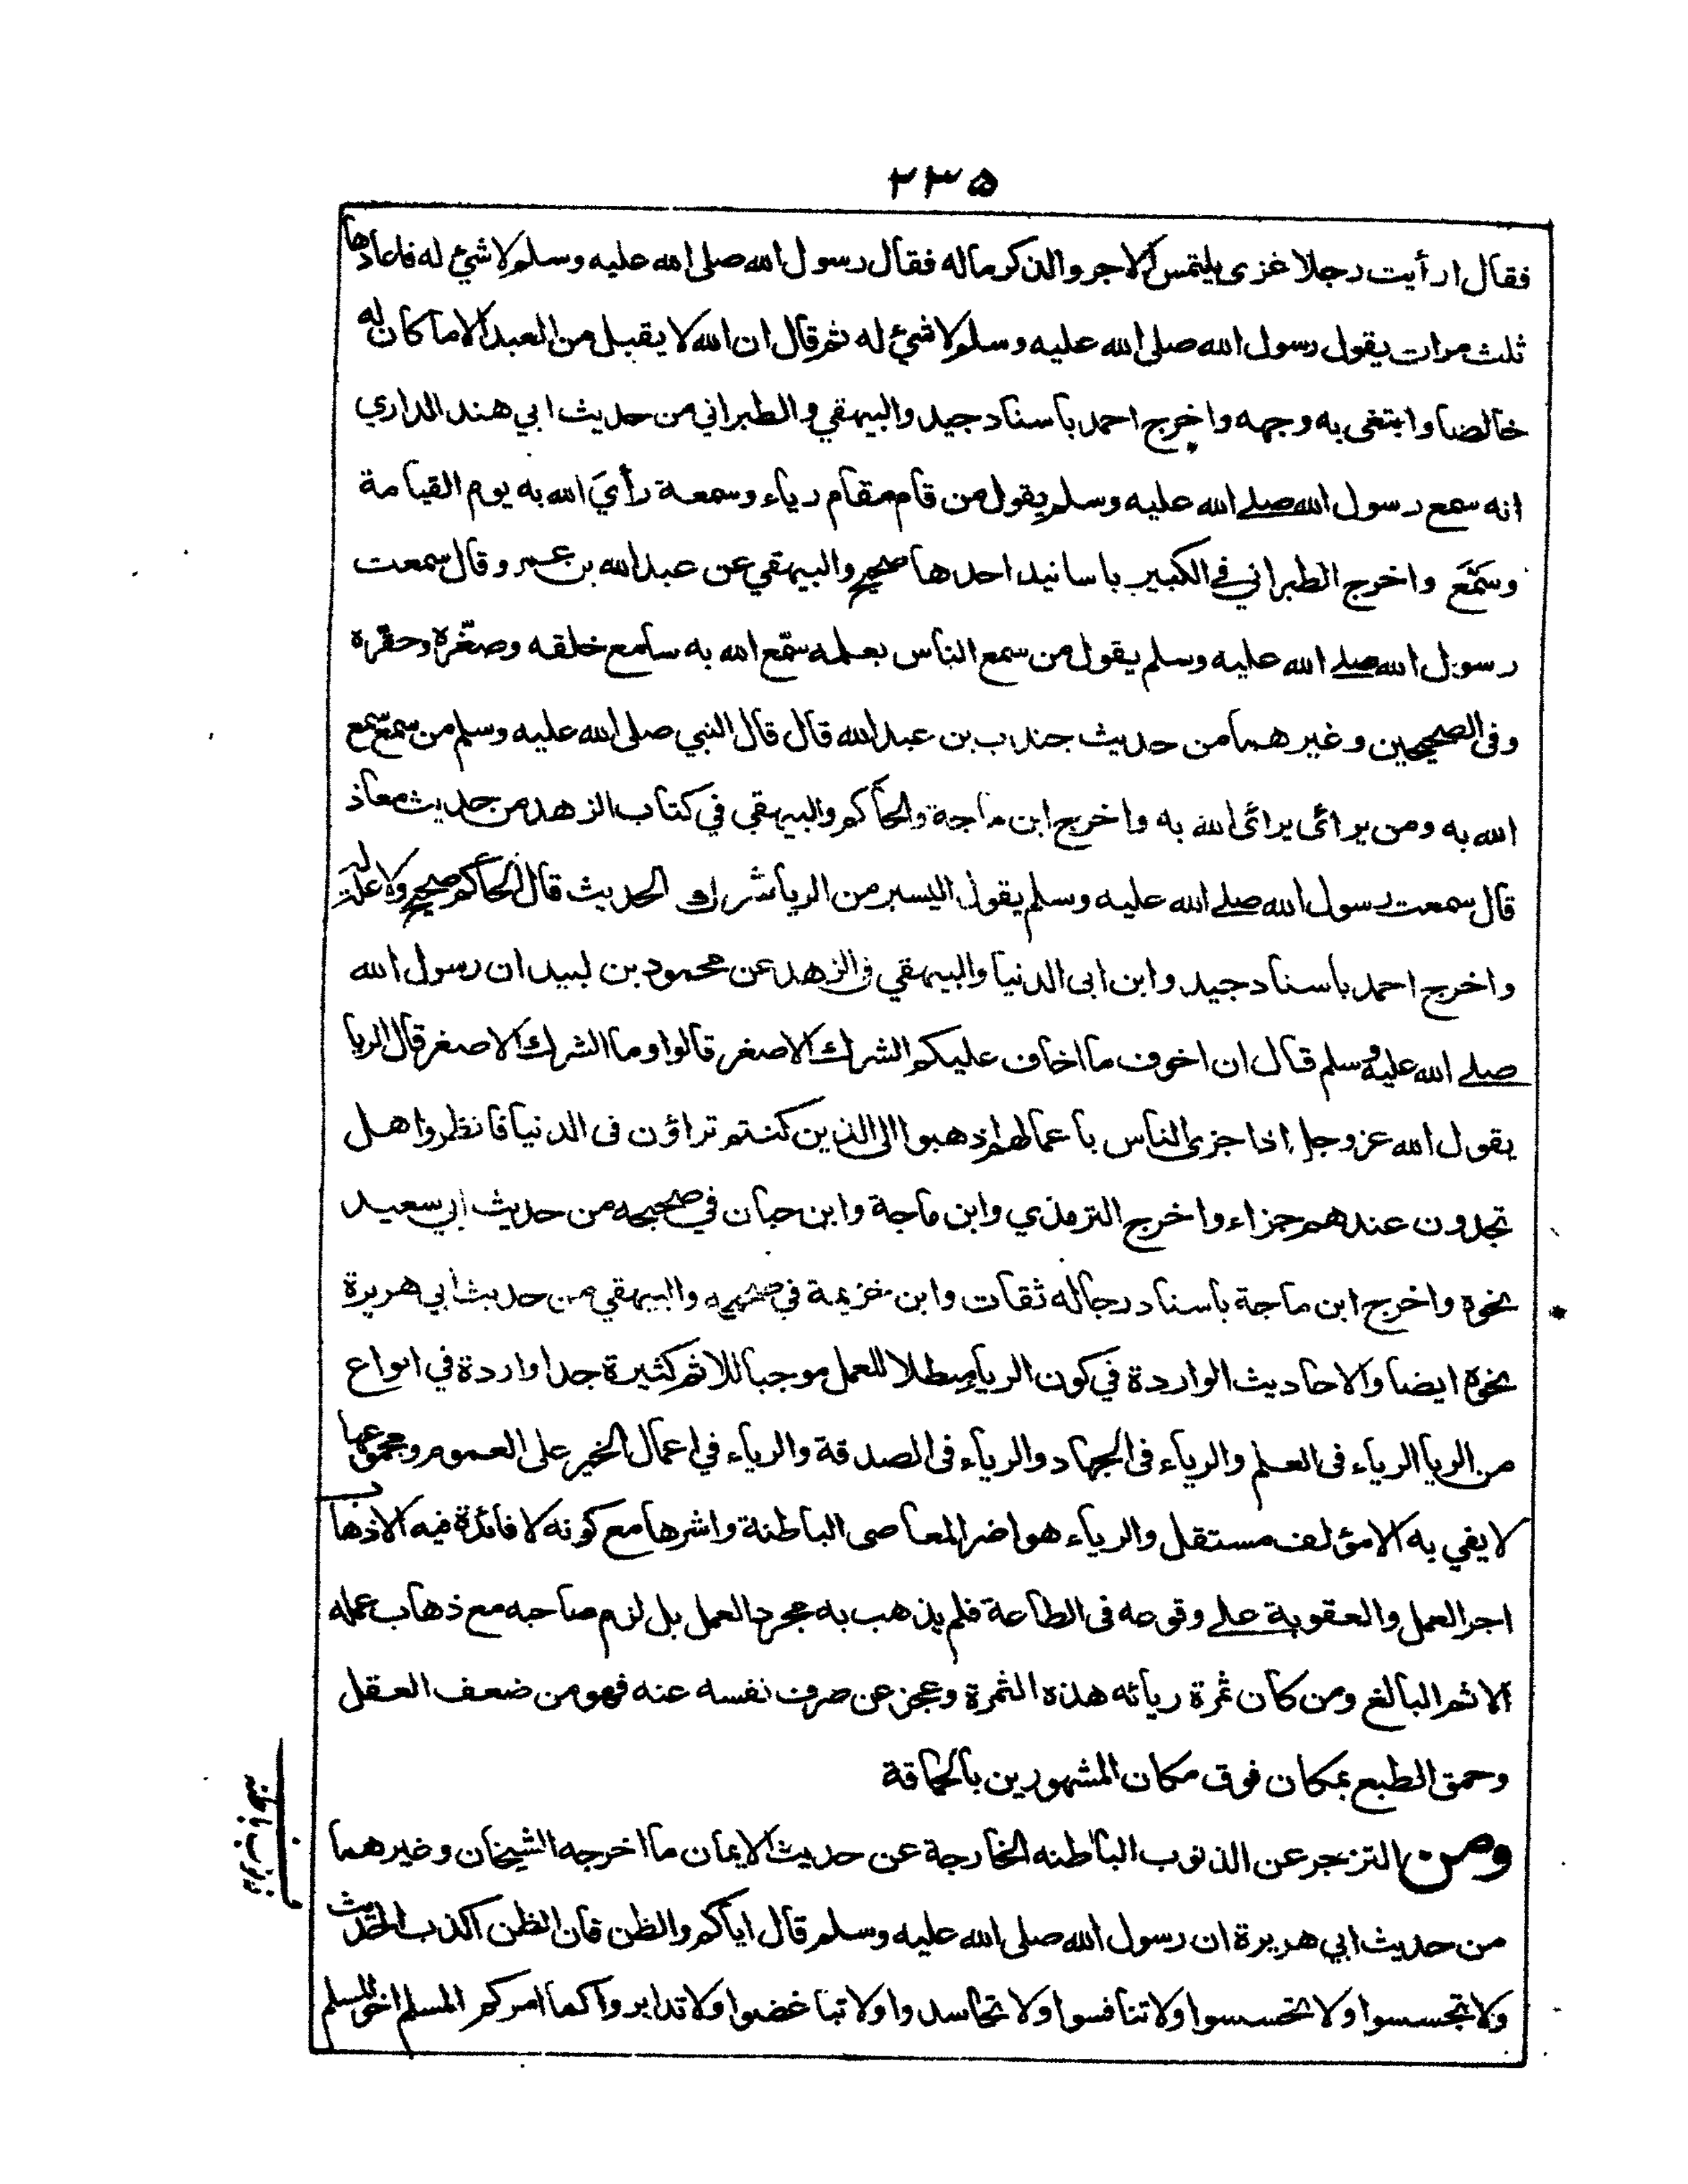 ٢٣٥
فقال ارأيت رجلا غزى يلتمس الاجر والذكر ماله فقال رسول الله صلى الله عليه وسلم لا شئ له فاعادها
ثلث مرات يقول رسول الله صلى الله عليه وسلم لا شئ له ثم قال ان الله لا يقبل من العبد الا ما كان له
خالصا وابتغى به وجهه واخرج احمد باسناد جيد والبيهقي والطبراني من حديث ابي هند الداري
انه سمع رسول الله صلے الله عليه وسلم يقول من قام مقام رياء وسمعة رأيَ الله به يوم القيامة
وسَمَّعَ واخرج الطبراني في الكبير باسانيد احدها صحيح والبيهقي عن عبد الله بن عمرو قال سمعت
رسول الله صلے الله عليه وسلم يقول من سمع الناس بعمله سمّع الله به سامع خلقه وصغّره وحقّره
وفى الصحيحين وغيرهما من حديث جندب بن عبد الله قال قال النبي صلى الله عليه وسلم من سمّع سمع
الله به ومن يرائى يرائى الله به واخرج ابن ماجة والحاكم والبيهقي في كتاب الزهد من حديث معاذ
قال سمعت رسول الله صلے الله عليه وسلم يقول اليسير من الريا شرك الحديث قال الحاكم صحيح ولا علة له
واخرج احمد باسناد جيد وابن ابى الدنيا والبيهقي فى الزهد عن محمود بن لبيد ان رسول الله
صلے الله عليه وسلم قال ان اخوف ما اخاف عليكم الشرك الاصغر قالوا وما الشرك الاصغر قال الريا
يقول الله عز وجل اذا جزى الناس باعمالهم اذهبوا الى الذين كنتم تراؤن فى الدنيا فانظروا هل
تجدون عندهم جزاء واخرج الترمذي وابن ماجة وابن حبان في صحيحه من حديث ابي سعيد
نحوه واخرج ابن ماجة باسناد رجاله ثقات وابن خزيمة في صحيحه والبيهقي من حديث ابي هريرة
نحوه ايضا والاحاديث الواردة في كون الريا مبطلا للعمل موجبا للاثم كثيرة جدا واردة في انواع
من الريا الرياء فى العلم والرياء فى الجهاد والرياء فى الصدقة والرياء في اعمال الخير على العموم ومجموعها
لا يفي به الا مؤلف مستقل والرياء هو اضر المعاصى الباطنة واشرها مع كونه لا فائدة فيه الا ذهاب
اجر العمل والعقوبة علے وقوعه فى الطاعة فلم يذهب به مجرد العمل بل لزم صاحبه مع ذهاب عمله
الاثم البالغ ومن كان ثمرة ريائه هذه الثمرة وعجز عن صرف نفسه عنه فهو من ضعف العقل
وحمق الطبع بمكان فوق مكان المشهورين بالحماقة
ومن التزجر عن الذنوب الباطنه الخارجة عن حديث الايمان ما اخرجه الشيخان وغيرهما
من حديث ابي هريرة ان رسول الله صلى الله عليه وسلم قال اياكم والظن فان الظن اكذب الحديث
ولا تجسسوا ولا تحسسوا ولا تنافسوا ولا تحاسدوا ولا تباغضوا ولا تدابروا كما امركم المسلم اخو المسلم
ذنوب باطنه